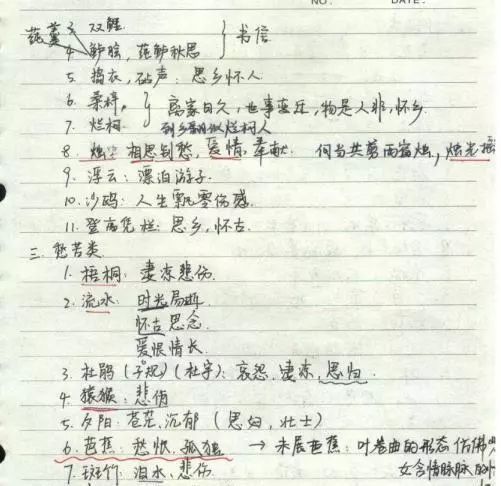 NO. DATE.
莼羹 3. 双鲤 } 书信
4. 鲈脍, 莼鲈秋思
5. 捣衣, 砧声: 思乡怀人
6. 桑梓, } 离家日久, 世事变迁, 物是人非, 怀乡
7. 烂柯 到乡翻似烂柯人
8. 烛: 相思别愁, 爱情, 奉献. 何当共剪西窗烛, 烛光
9. 浮云: 漂泊游子
10. 沙鸥: 人生飘零伤感
11. 登高凭栏: 思乡, 怀古
三. 愁苦类
1. 梧桐: 凄凉悲伤
2. 流水: 时光易逝
怀古思念
爱恨情长
3. 杜鹃 (子规) (杜宇): 哀怨, 凄凉, 思归
4. 猿猴: 悲伤
5. 夕阳: 苍茫, 沉郁 (思妇, 壮士)
6. 芭蕉: 愁恨, 孤独 → 未展芭蕉: 叶卷曲的形态仿佛
女含情脉脉的
7. 斑竹: 泪水, 悲伤